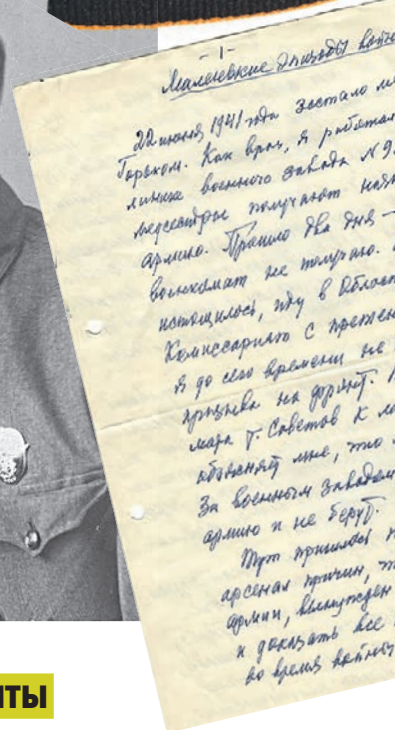 - 1 -
Маленькие эпизоды войны
22 июня 1941 года застало ме
Горьком. Как врач, я работал
линике военного завода № 9
медсестры получают
армию. Прошло два дня —
военкомат не получаю.
истощилось, иду в Област
Комиссариат с претен
я до сего времени не
призыва на фронт.
мара т. Советов К
объясняет мне, что
За военным Заводом
армию и не берут.
Тут пришлось
арсенал причин,
армии, вынужден
и доказать все
во время войны
ТЫ